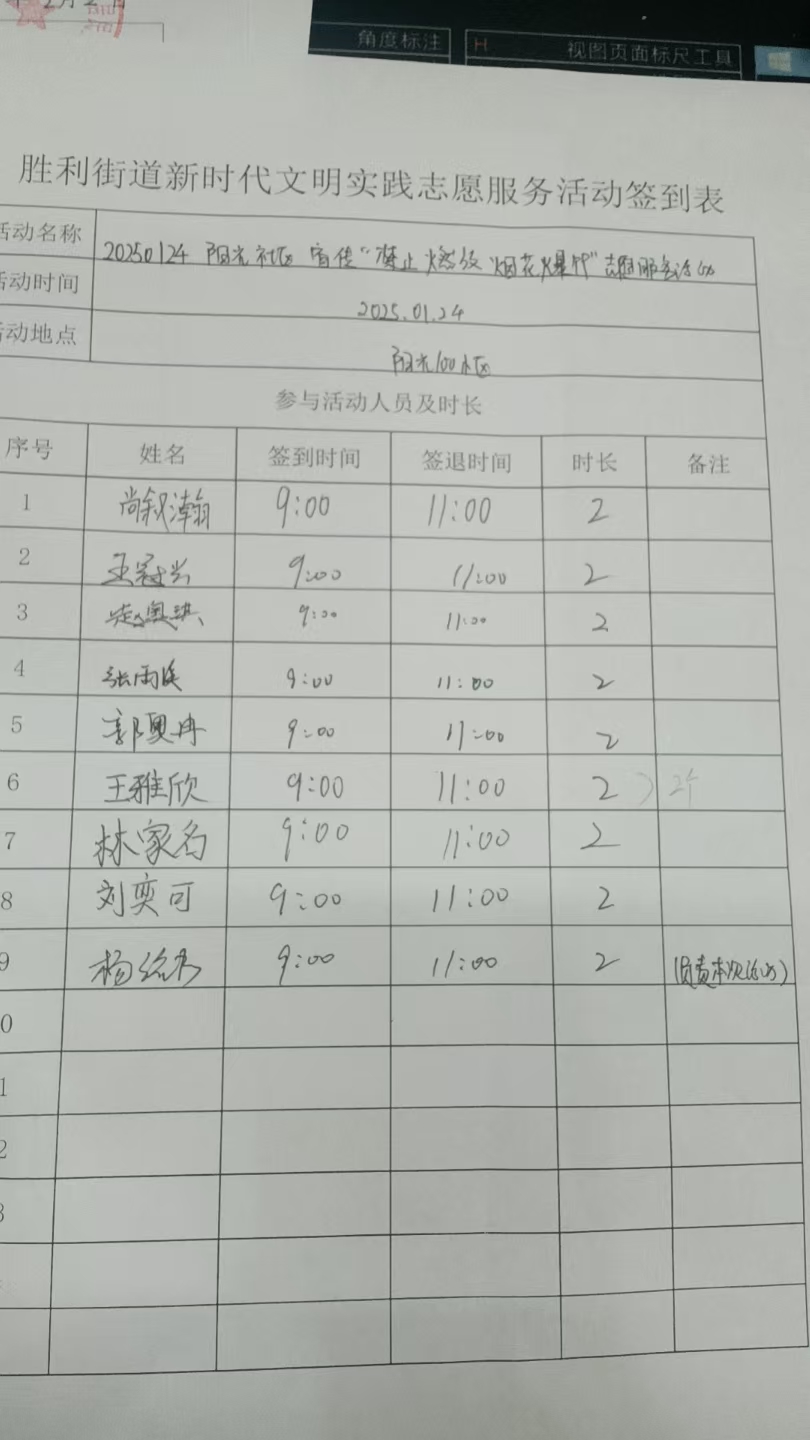 2月2日
角度标注
H 视图页面标尺工具
胜利街道新时代文明实践志愿服务活动签到表
活动名称 20250124 阳光社区 宣传“禁止燃放 烟花爆竹”志愿服务活动
活动时间 2025.01.24
活动地点 阳光100小区
参与活动人员及时长
序号 姓名 签到时间 签退时间 时长 备注
1 尚叙瀚 9:00 11:00 2
2 王冠兴 9:00 11:00 2
3 9:00 11:00 2
4 张雨 9:00 11:00 2
5 郭奥冉 9:00 11:00 2
6 王雅欣 9:00 11:00 2
7 林家名 9:00 11:00 2
8 刘奕可 9:00 11:00 2
9 杨 9:00 11:00 2 (负责本次活动)
0
1
2
3